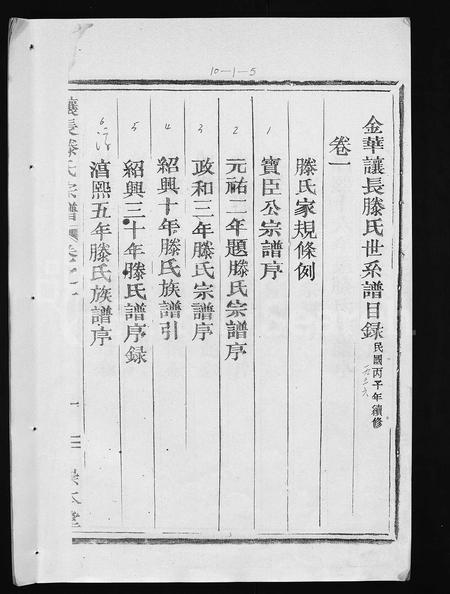 10-1-5
金華讓長滕氏世系譜目録 民國丙子年續修
一九三六
卷一
滕氏家規條例
1
寶臣公宗譜序
2
元祐二年題滕氏宗譜序
3
政和三年滕氏宗譜序
4
紹興十年滕氏族譜引
5
紹興三十年滕氏譜序録
6
淳熙五年滕氏族譜序
讓長滕氏宗譜